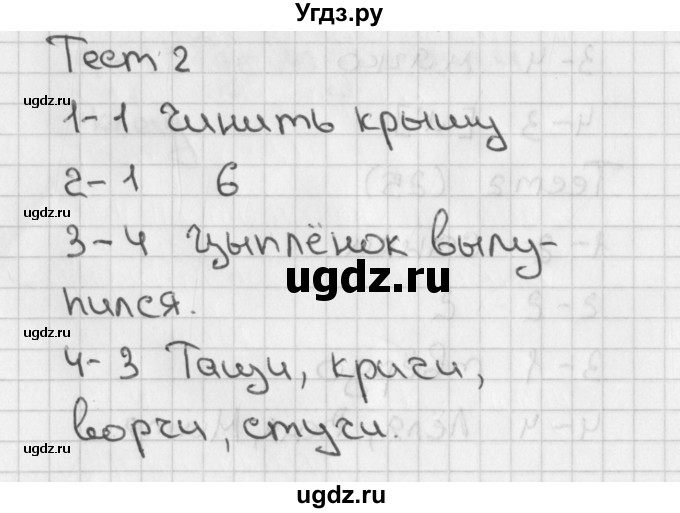 Угдз.ру
Тест 2
ugdz.ru
1-1 Чинить крышу
2-1 6
ugdz.ru
3-4 Цыплёнок вылу-
ugdz.ru
пился.
ugdz.ru
4-3 Тащи, кричи,
ворчи, стучи.
ugdz.ru
ugdz.ru